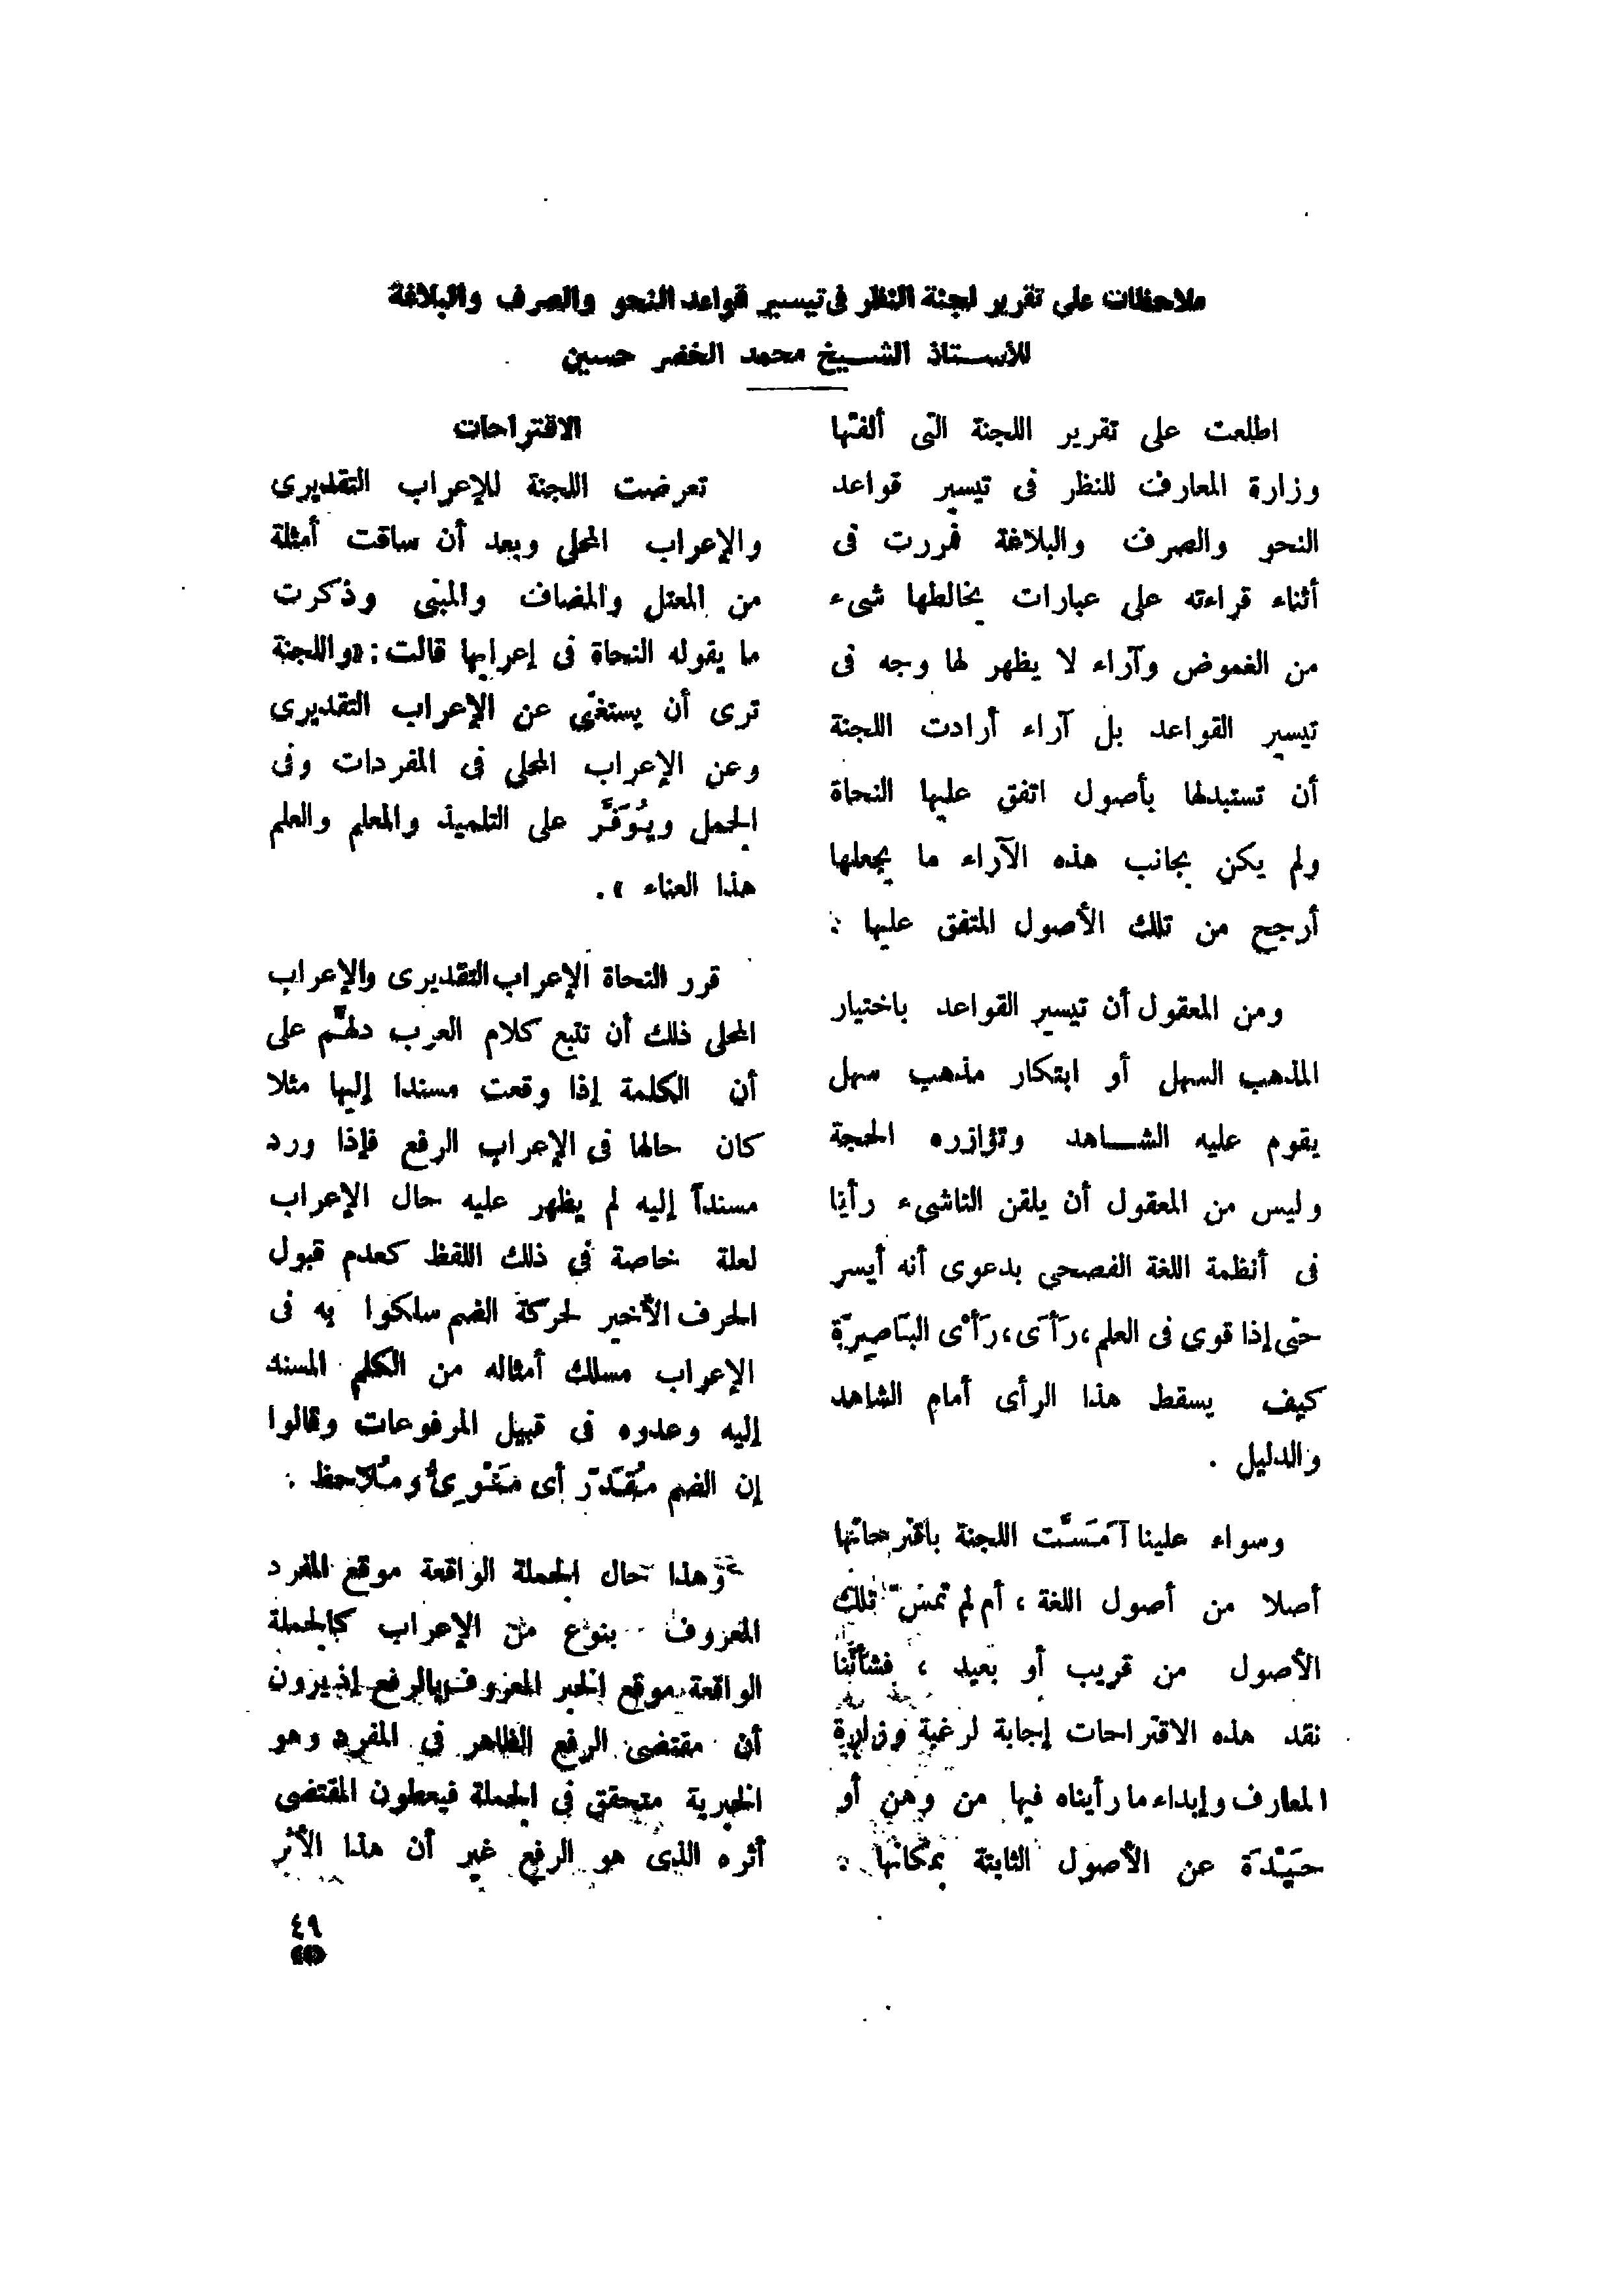 ملاحظات على تقرير لجنة النظر فى تيسير قواعد النحو والصرف والبلاغة
للأستاذ الشيخ محمد الخضر حسين
اطلعت على تقرير اللجنة التى ألفتها
وزارة المعارف للنظر فى تيسير قواعد
النحو والصرف والبلاغة فمررت فى
أثناء قراءته على عبارات يخالطها شىء
من الغموض وآراء لا يظهر لها وجه فى
تيسير القواعد بل آراء أرادت اللجنة
أن تستبدلها بأصول اتفق عليها النحاة
ولم يكن بجانب هذه الآراء ما يجعلها
أرجح من تلك الأصول المتفق عليها :
ومن المعقول أن تيسير القواعد باختيار
المذهب السهل أو ابتكار مذهب سهل
يقوم عليه الشاهد وتؤازره الحجة
وليس من المعقول أن يلقن الناشىء رأيا
فى أنظمة اللغة الفصحى بدعوى أنه أيسر
حتى إذا قوى فى العلم، رَأَى، رَأْىَ البَاصِيرَة
كيف يسقط هذا الرأى أمام الشاهد
والدليل .
وسواء علينا آمَسَّت اللجنة باقتراحاتها
أصلا من أصول اللغة ، أم لم تمسّ تلك
الأصول من قريب أو بعيد ، فشأننا
نقد هذه الاقتراحات إجابة لرغبة وزارة
المعارف وإبداء ما رأيناه فيها من وهن أو
حَيْدَة عن الأصول الثابتة بمكانها :
الاقتراحات
تعرضت اللجنة للإعراب التقديرى
والإعراب المحلى وبعد أن ساقت أمثلة
من المعتل والمضاف والمبنى وذكرت
ما يقوله النحاة فى إعرابها قالت : «واللجنة
ترى أن يستغنى عن الإعراب التقديرى
وعن الإعراب المحلى فى المفردات وفى
الجمل ويُوَفَّر على التلميذ والمعلم والعلم
هذا العناء » .
قرر النحاة الإعراب التقديرى والإعراب
المحلى ذلك أن تتبع كلام العرب دلهَّم على
أن الكلمة إذا وقعت مسندا إليها مثلا
كان حالها فى الإعراب الرفع فإذا ورد
مسنداً إليه لم يظهر عليه حال الإعراب
لعلة خاصة فى ذلك اللفظ كعدم قبول
الحرف الأخير لحركة الضم سلكوا به فى
الإعراب مسلك أمثاله من الكلم المسند
إليه وعدوه فى قبيل المرفوعات وقالوا
إن الضم مُقَدّر أى مَنْوِىٌّ ومُلاحظ :
وهذا حال الجملة الواقعة موقع المفرد
المعروف بنوع من الإعراب كالجملة
الواقعة موقع الخبر المعروف بالرفع إذ يرون
أن مقتضى الرفع الظاهر فى المفرد وهو
الخبرية متحقق فى الجملة فيعطون المقتضى
أثره الذى هو الرفع غير أن هذا الأثر
٤٩